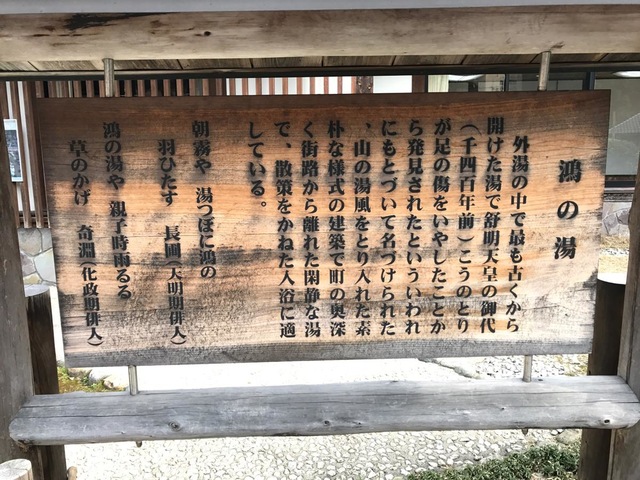 鴻の湯
外湯の中で最も古くから
開けた湯で舒明天皇の御代
（千四百年前）こうのとり
が足の傷をいやしたことか
ら発見されたといういわれ
にもとづいて名づけられた
、山の湯風をとり入れた素
朴な様式の建築で町の奥深
く街路から離れた閑静な湯
で、散策をかねた入浴に適
している。
朝霧や　湯つぼに鴻の
羽ひたす　長圃（天明期俳人）
鴻の湯や　親子時雨るる
草のかげ　奇淵（化政期俳人）